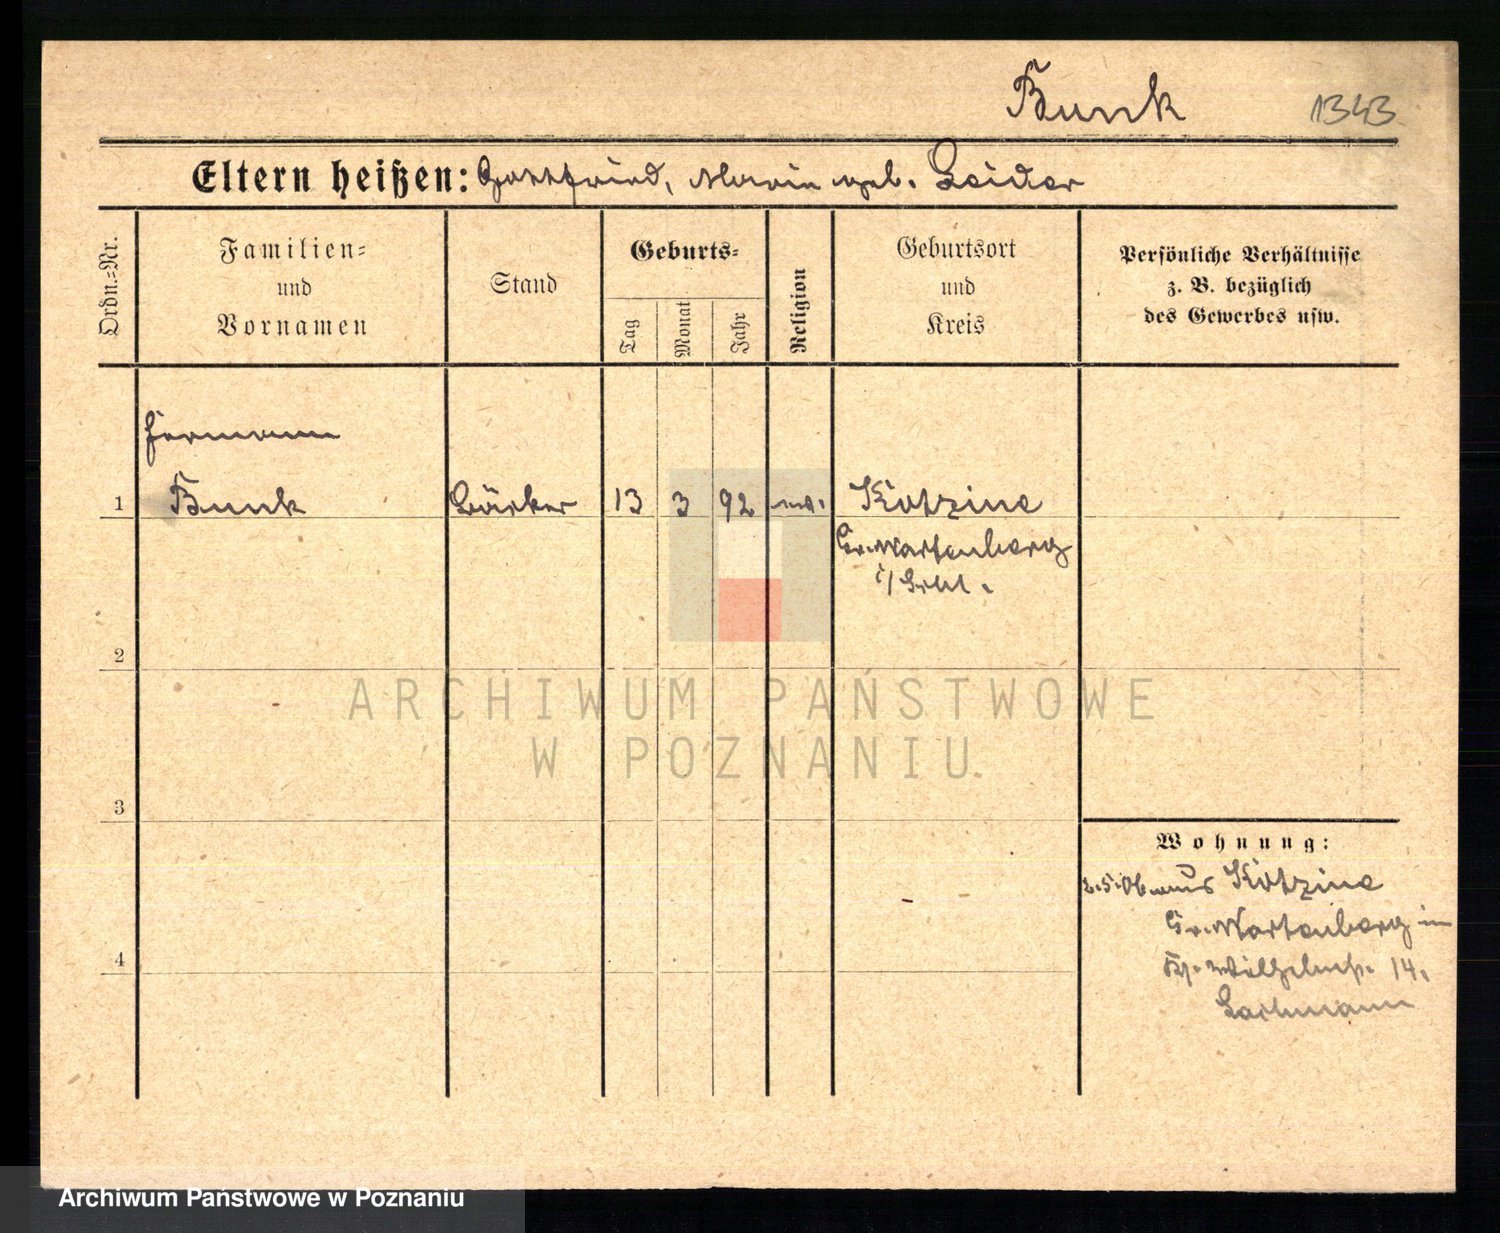 Bunk 1343
Eltern heißen: Gottfried, Marie geb. Leider
Ordn.-Nr.
Familien-
und
Vornamen
Stand
Geburts-
Tag
Monat
Jahr
Religion
Geburtsort
und
Kreis
Persönliche Verhältnisse
z. B. bezüglich
des Gewerbes usw.
Hermann
1 Bunk Bäcker 13 3 92 ev. Kotzine
Gr. Wartenberg
i/Schl.
2
ARCHIWUM PAŃSTWOWE
W POZNANIU
3
Wohnung:
aus Kotzine
Gr. Wartenberg in
Wilhelmst. 14.
Lachmann
4
Archiwum Państwowe w Poznaniu